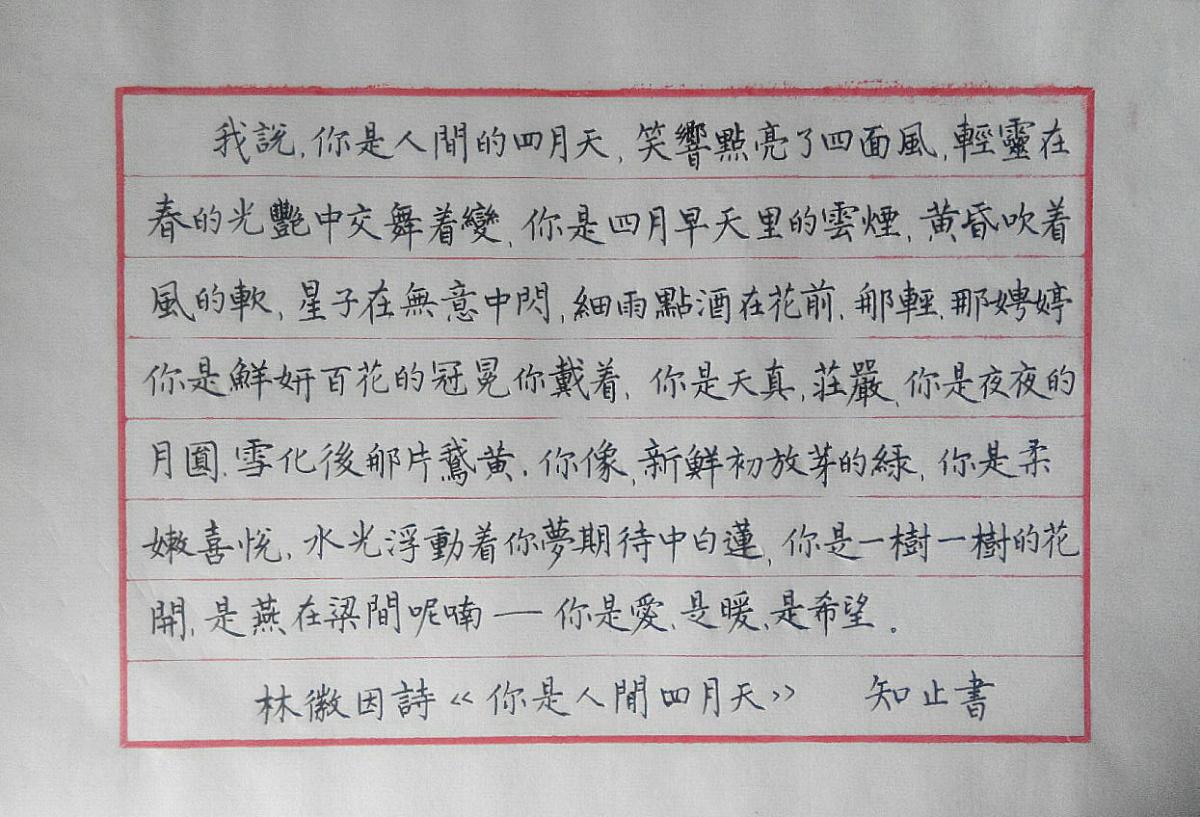 我說,你是人間的四月天,笑響點亮了四面風,輕靈在
春的光艷中交舞着變,你是四月早天里的雲煙,黄昏吹着
風的軟,星子在無意中閃,細雨點酒在花前.那輕.那娉婷
你是鮮妍百花的冠冕你戴着,你是天真,莊嚴,你是夜夜的
月圓.雪化後那片鵝黄.你像,新鮮初放芽的緑,你是柔
嫩喜悅,水光浮動着你夢期待中白蓮,你是一樹一樹的花
開,是燕在梁間呢喃——你是愛,是暖,是希望。
林徽因詩《你是人間四月天》 知止書